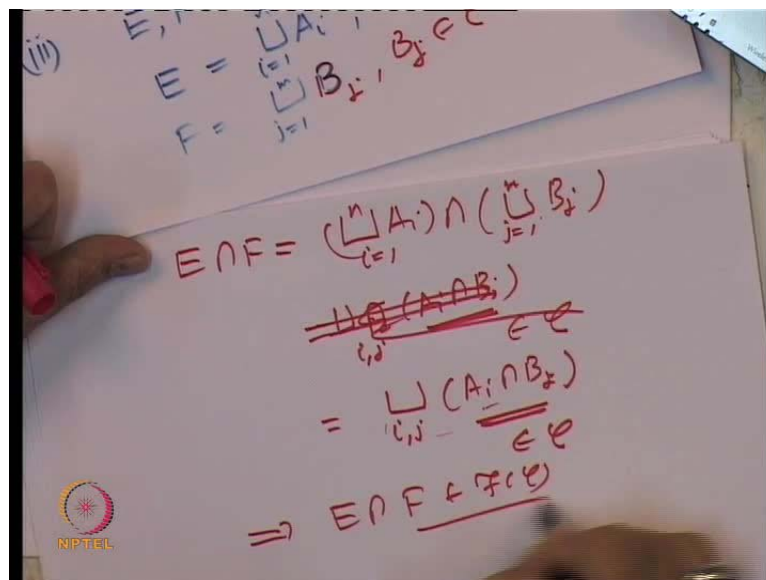 (iii) E,
E = ⊔_{i=1} A_i,
F = ⊔_{j=1}^{m} B_j, B_j ∈ C
E ∩ F = (⊔_{i=1}^{n} A_i) ∩ (⊔_{j=1}^{m} B_j)
= ⊔_{i,j} (A_i ∩ B_j)
∈ C
⇒ E ∩ F ∈ F(C)
NPTEL